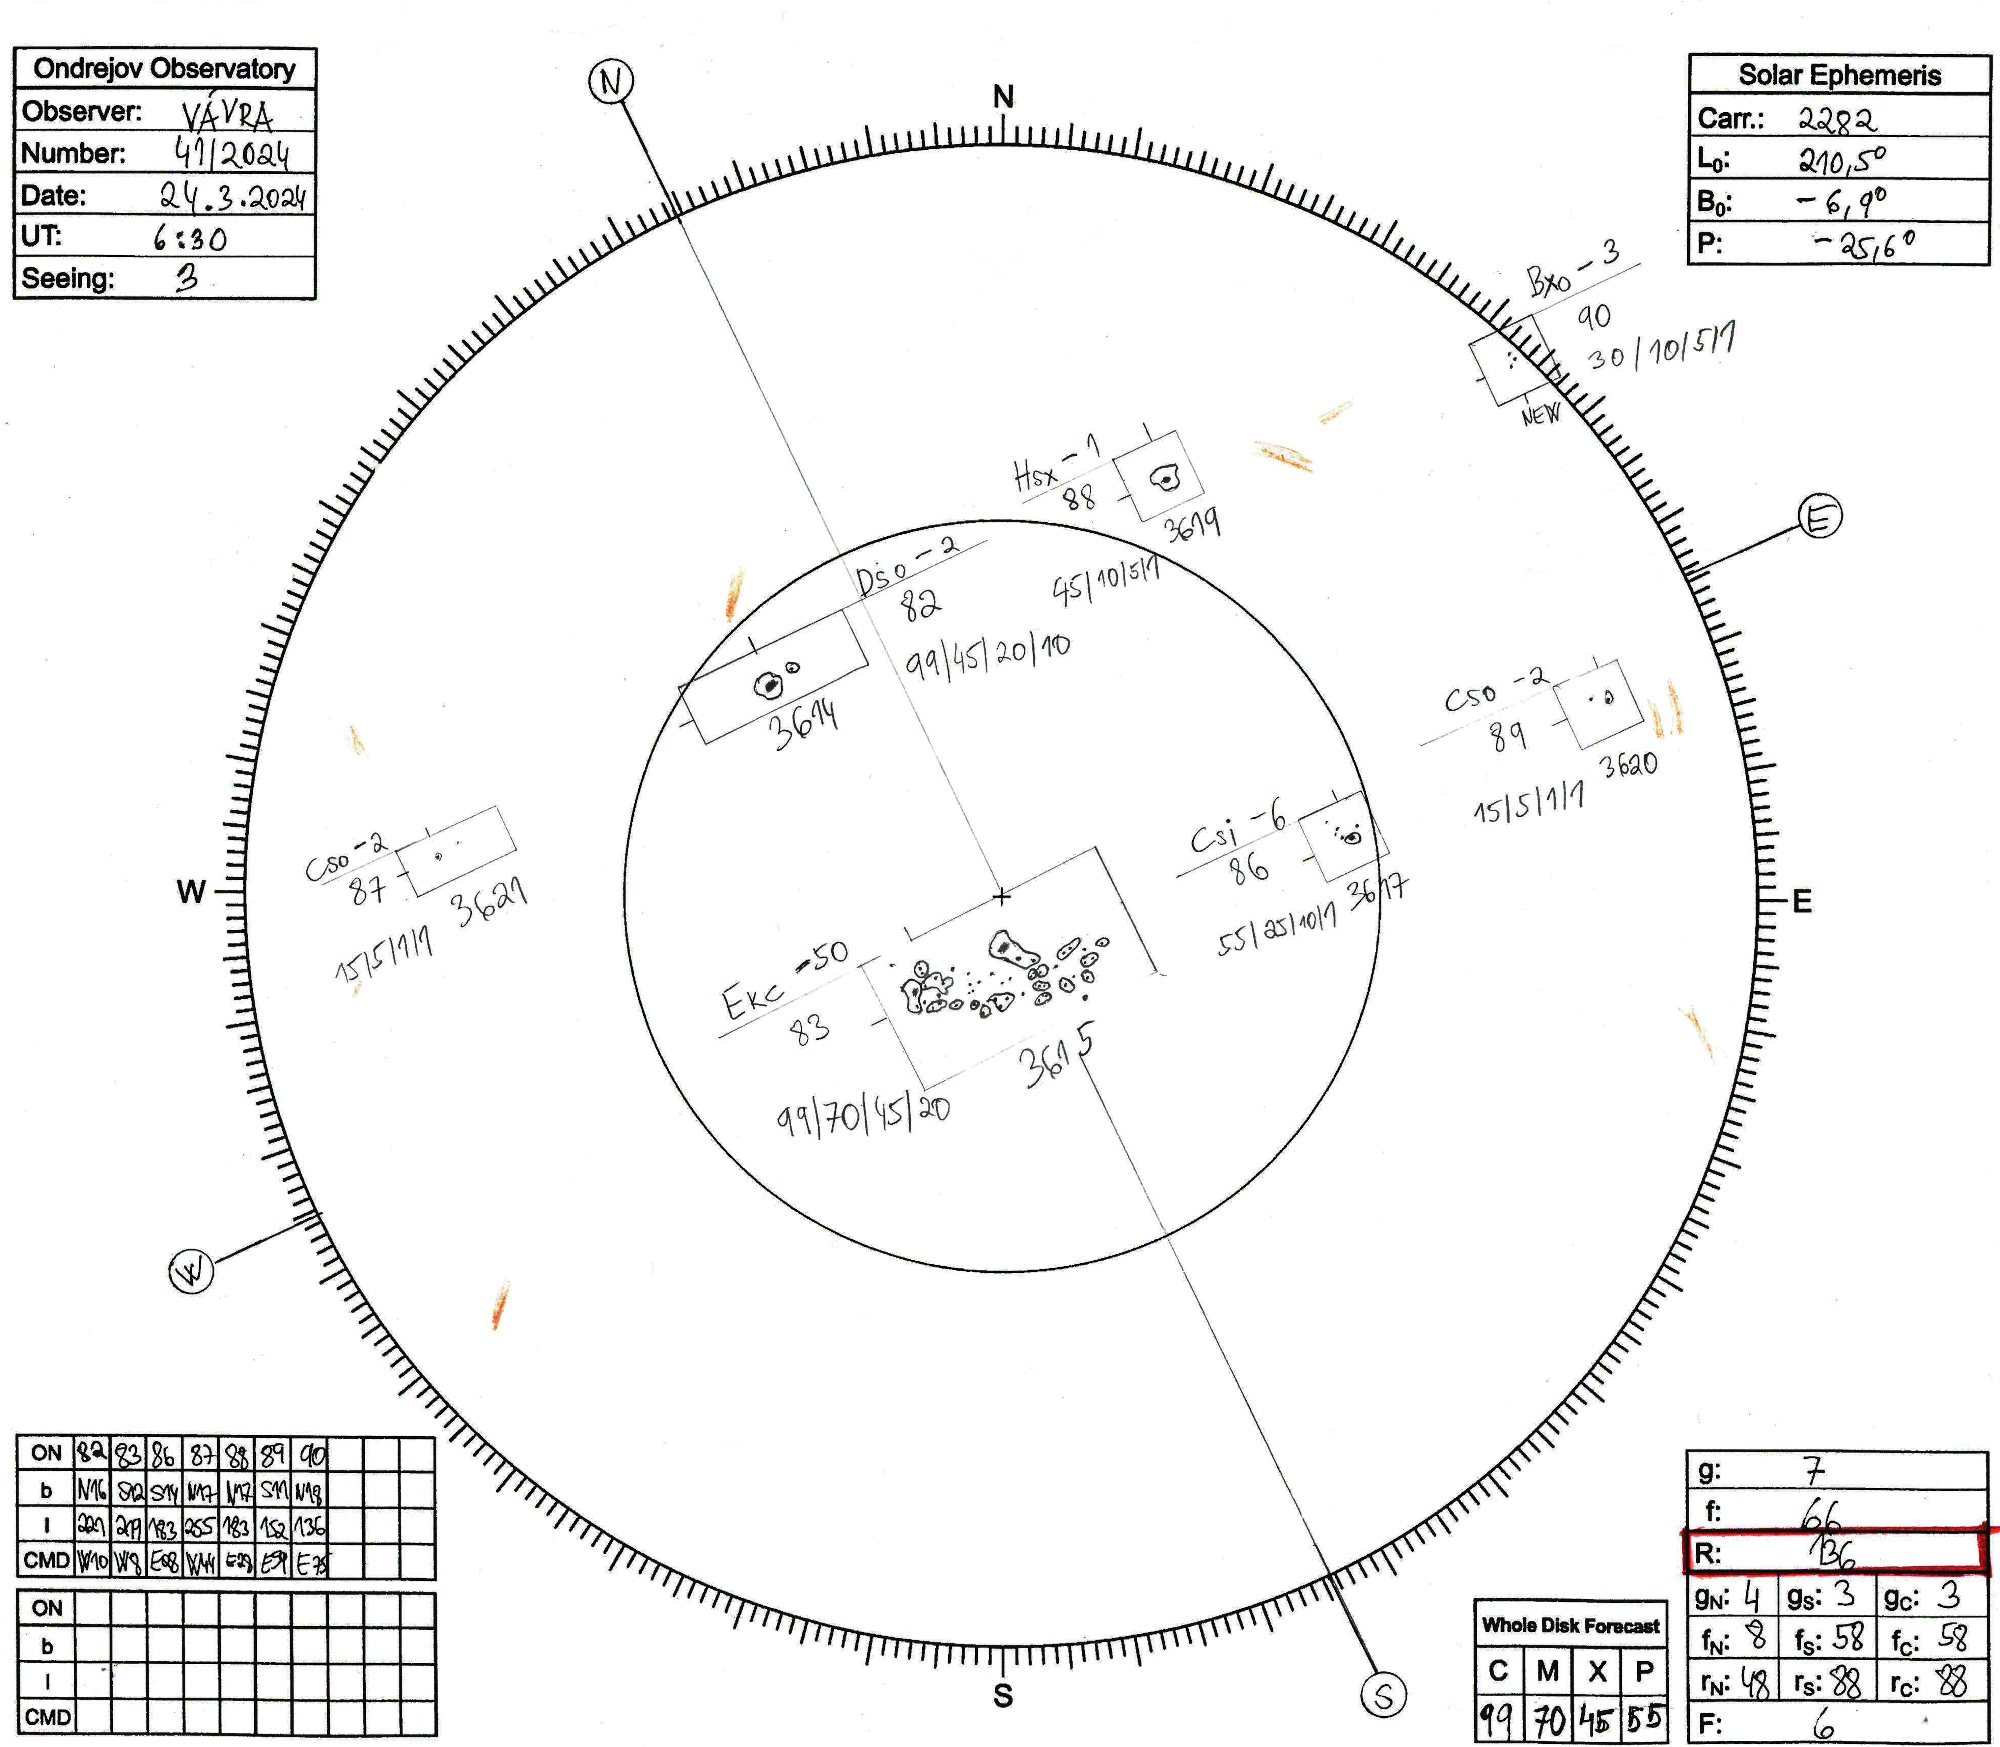 Ondrejov Observatory
Observer: VÁVRA
Number: 41/2024
Date: 24.3.2024
UT: 6:30
Seeing: 3
Solar Ephemeris
Carr.: 2282
L0: 210,5°
B0: -6,9°
P: -25,6°
N
N
Bxo-3
90
30/10/5/1
NEW
Hsx-1
88
3619
45/10/5/1
E
Dso-2
82
99/45/20/10
3614
Cso-2
89
3620
15/5/1/1
Csi-6
86
3617
55/25/10/1
Cso-2
87
3621
15/5/1/1
W
E
Ekc-50
83
3615
99/70/45/20
W
S
S
ON 82 83 86 87 88 89 90
b N16 S12 S14 N17 N17 S11 N18
l 221 219 183 255 183 152 136
CMD W10 W8 E28 W44 E28 E59 E75
ON
b
l
CMD
Whole Disk Forecast
C M X P
99 70 45 55
g: 7
f: 66
R: 136
gN: 4 gS: 3 gC: 3
fN: 8 fS: 58 fC: 58
rN: 48 rS: 88 rC: 88
F: 6